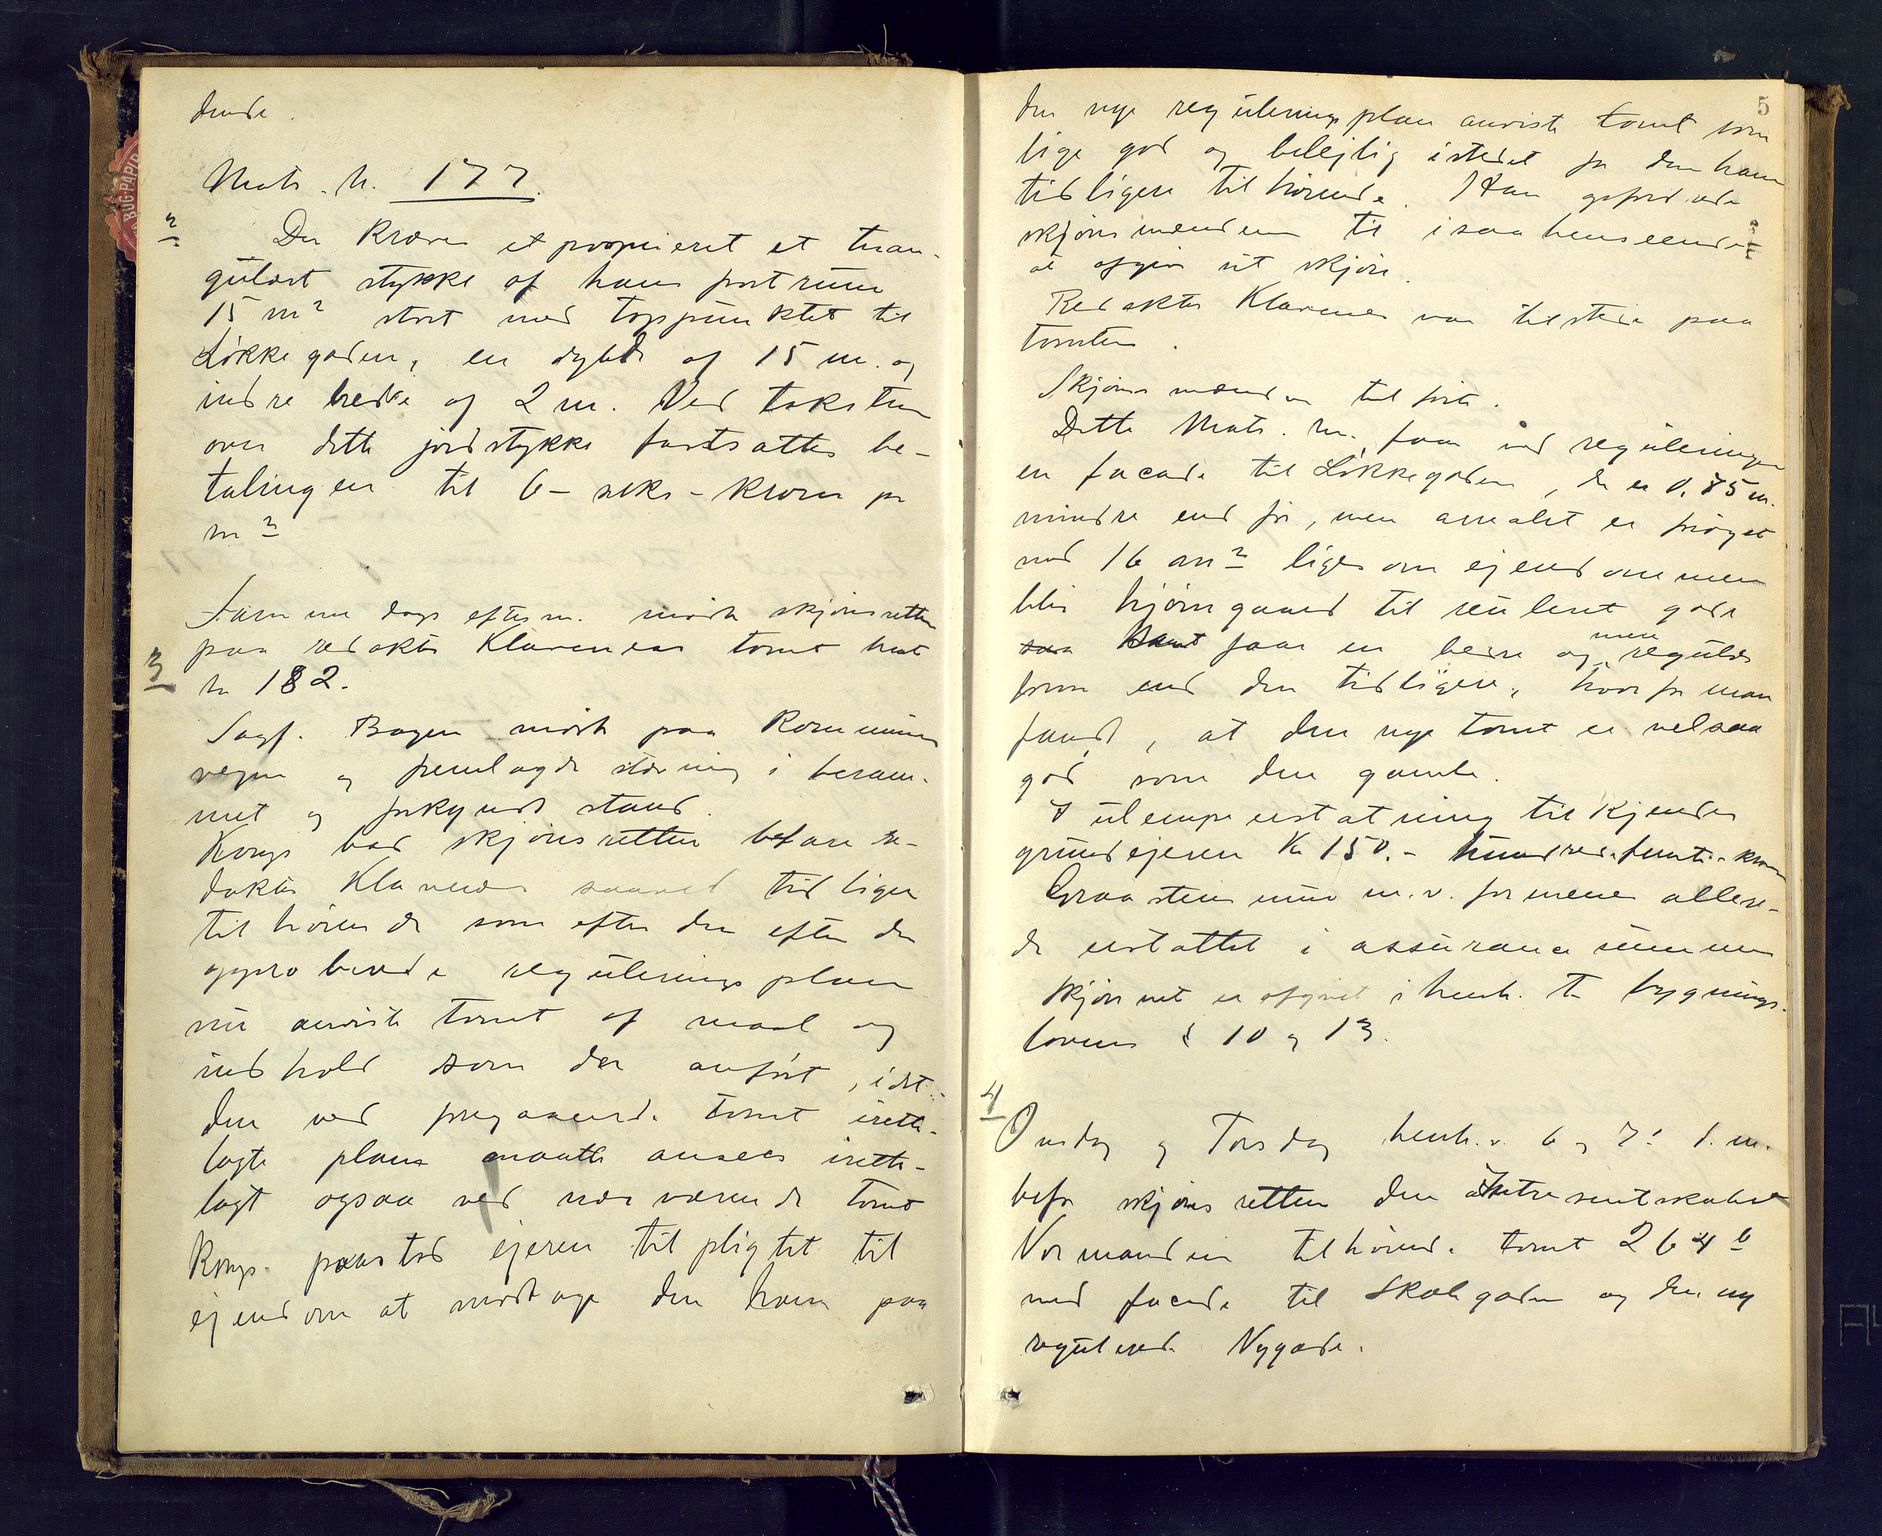 dende.
Matr. N. 177.
2
Der kræves exproprieret et trian-
gulært stykke af hans fortrum
15 m² stort med toppunktet til
Løkkegaden, en dybde af 15 m. og
indre bredde af 2 m. Ved taksten
over dette jordstykke fastsattes be-
talingen til 6 - seks - kroner pr
m²
Samme dags efterm. mødte skjønsretten
paa redaktør Klavenes tomt mat
3
N 182.
Sagf. Bugge mødte paa Kommunens
vegne og fremlagde stævning i beram-
met og forkyndt stand.
Komp. bad skjønsretten befare re-
daktør Klavenes saavel tidligere
tilhørende som efter den efter den
approberede reguleringsplan
nu anviste tomt af maal og
indhold som der anført, idet
den ved foregaaende tomt irette-
lagte plan maatte ansees irette-
lagt ogsaa ved nærværende tomt
Komp. paastod ejeren tilpligtet til
ejendom at modtage den ham paa
5
den nye reguleringsplan anviste tomt som
lige god og belejlig istedet for den ham
tidligere tilhørende. Han opfordrede
skjønsmændene til i saa henseende
at afgive sit skjøn.
Redaktør Klavenes var tilstede paa
tomten.
Skjønsmændene tilførte.
Dette Matr. nr. faar ved reguleringen
en facade til Løkkegaden, der er 0,75 m.
mindre end før, men arealet er forøget
med 16 m² ligesom ejendommen
blir hjørnegaard til reguleret gade
samt faar en bedre og mere regulær
form end den tidligere, hvorfor man
fandt, at den nye tomt er velsaa
god som den gamle.
I ulempeerstatning tilkjendes
grundejeren Kr 150.- hundrede femti - kroner
Graastensmur m.v. formenes allere-
de erstattet i assurancesummen
Skjønnet er afgivet i henh. til bygnings-
lovens § 10 og 13.
4
Onsdag og Torsdag henh.v. 6 og 7. d.m.
befor skjønsretten den Interessentskabet
Normanden tilhørende tomt 264 b
med facade til Skolegaden og den ny
regulerede Nygade.